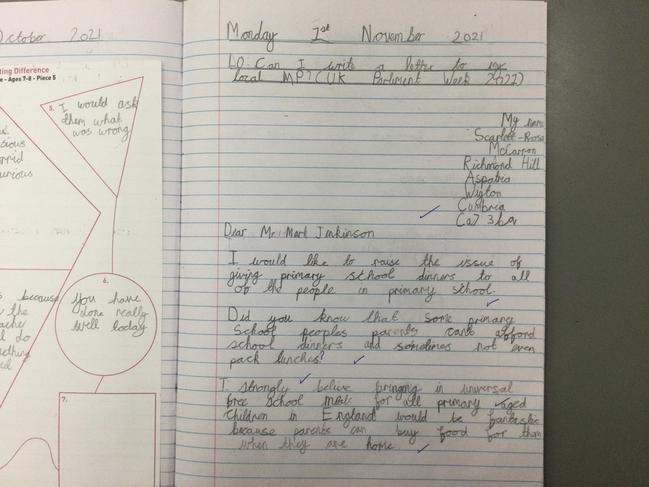 October 2021
ting Difference
e - Ages 7-8 - Piece 5
5. I would ask
them what
was wrong
cious
urious
s because
the
acher
do
ething
6.
You have
done really
well today
7.
Monday 1st November 2021
LO: Can I write a letter to my
local MP? (UK Parliment Week 2021)
My name
Scarlett-Rose
McCarron
Richmond Hill
Aspatria
Wigton
Cumbria
Ca7 3
Dear Mr Mark Jenkinson
I would like to raise the issue of
giving primary school dinners to all
of the people in primary school.
Did you know that some primary
School peoples parents cant afford
school dinners and sometimes not even
pack lunches?
I strongly believe bringing in universal
free school meals for all primary aged
children in England would be fantastic
because parents can buy food for them
when they are home.